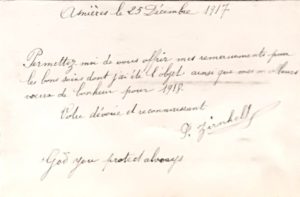 Asnières le 25 Décembre 1917.
Permettez moi de vous offrir mes remerciements pour
les bons soins dont j'ai été l'objet ainsi que mes meilleurs
voeux de bonheur pour 1918.
Votre dévoué et reconnaissant
P. Zirnhelt
God you protect always